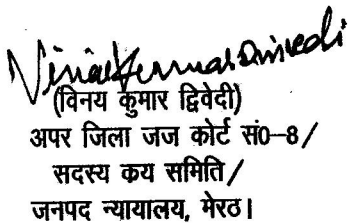 Vinai Kumar Dwivedi
(विनय कुमार द्विवेदी)
अपर जिला जज कोर्ट सं0-8/
सदस्य कय समिति/
जनपद न्यायालय, मेरठ।